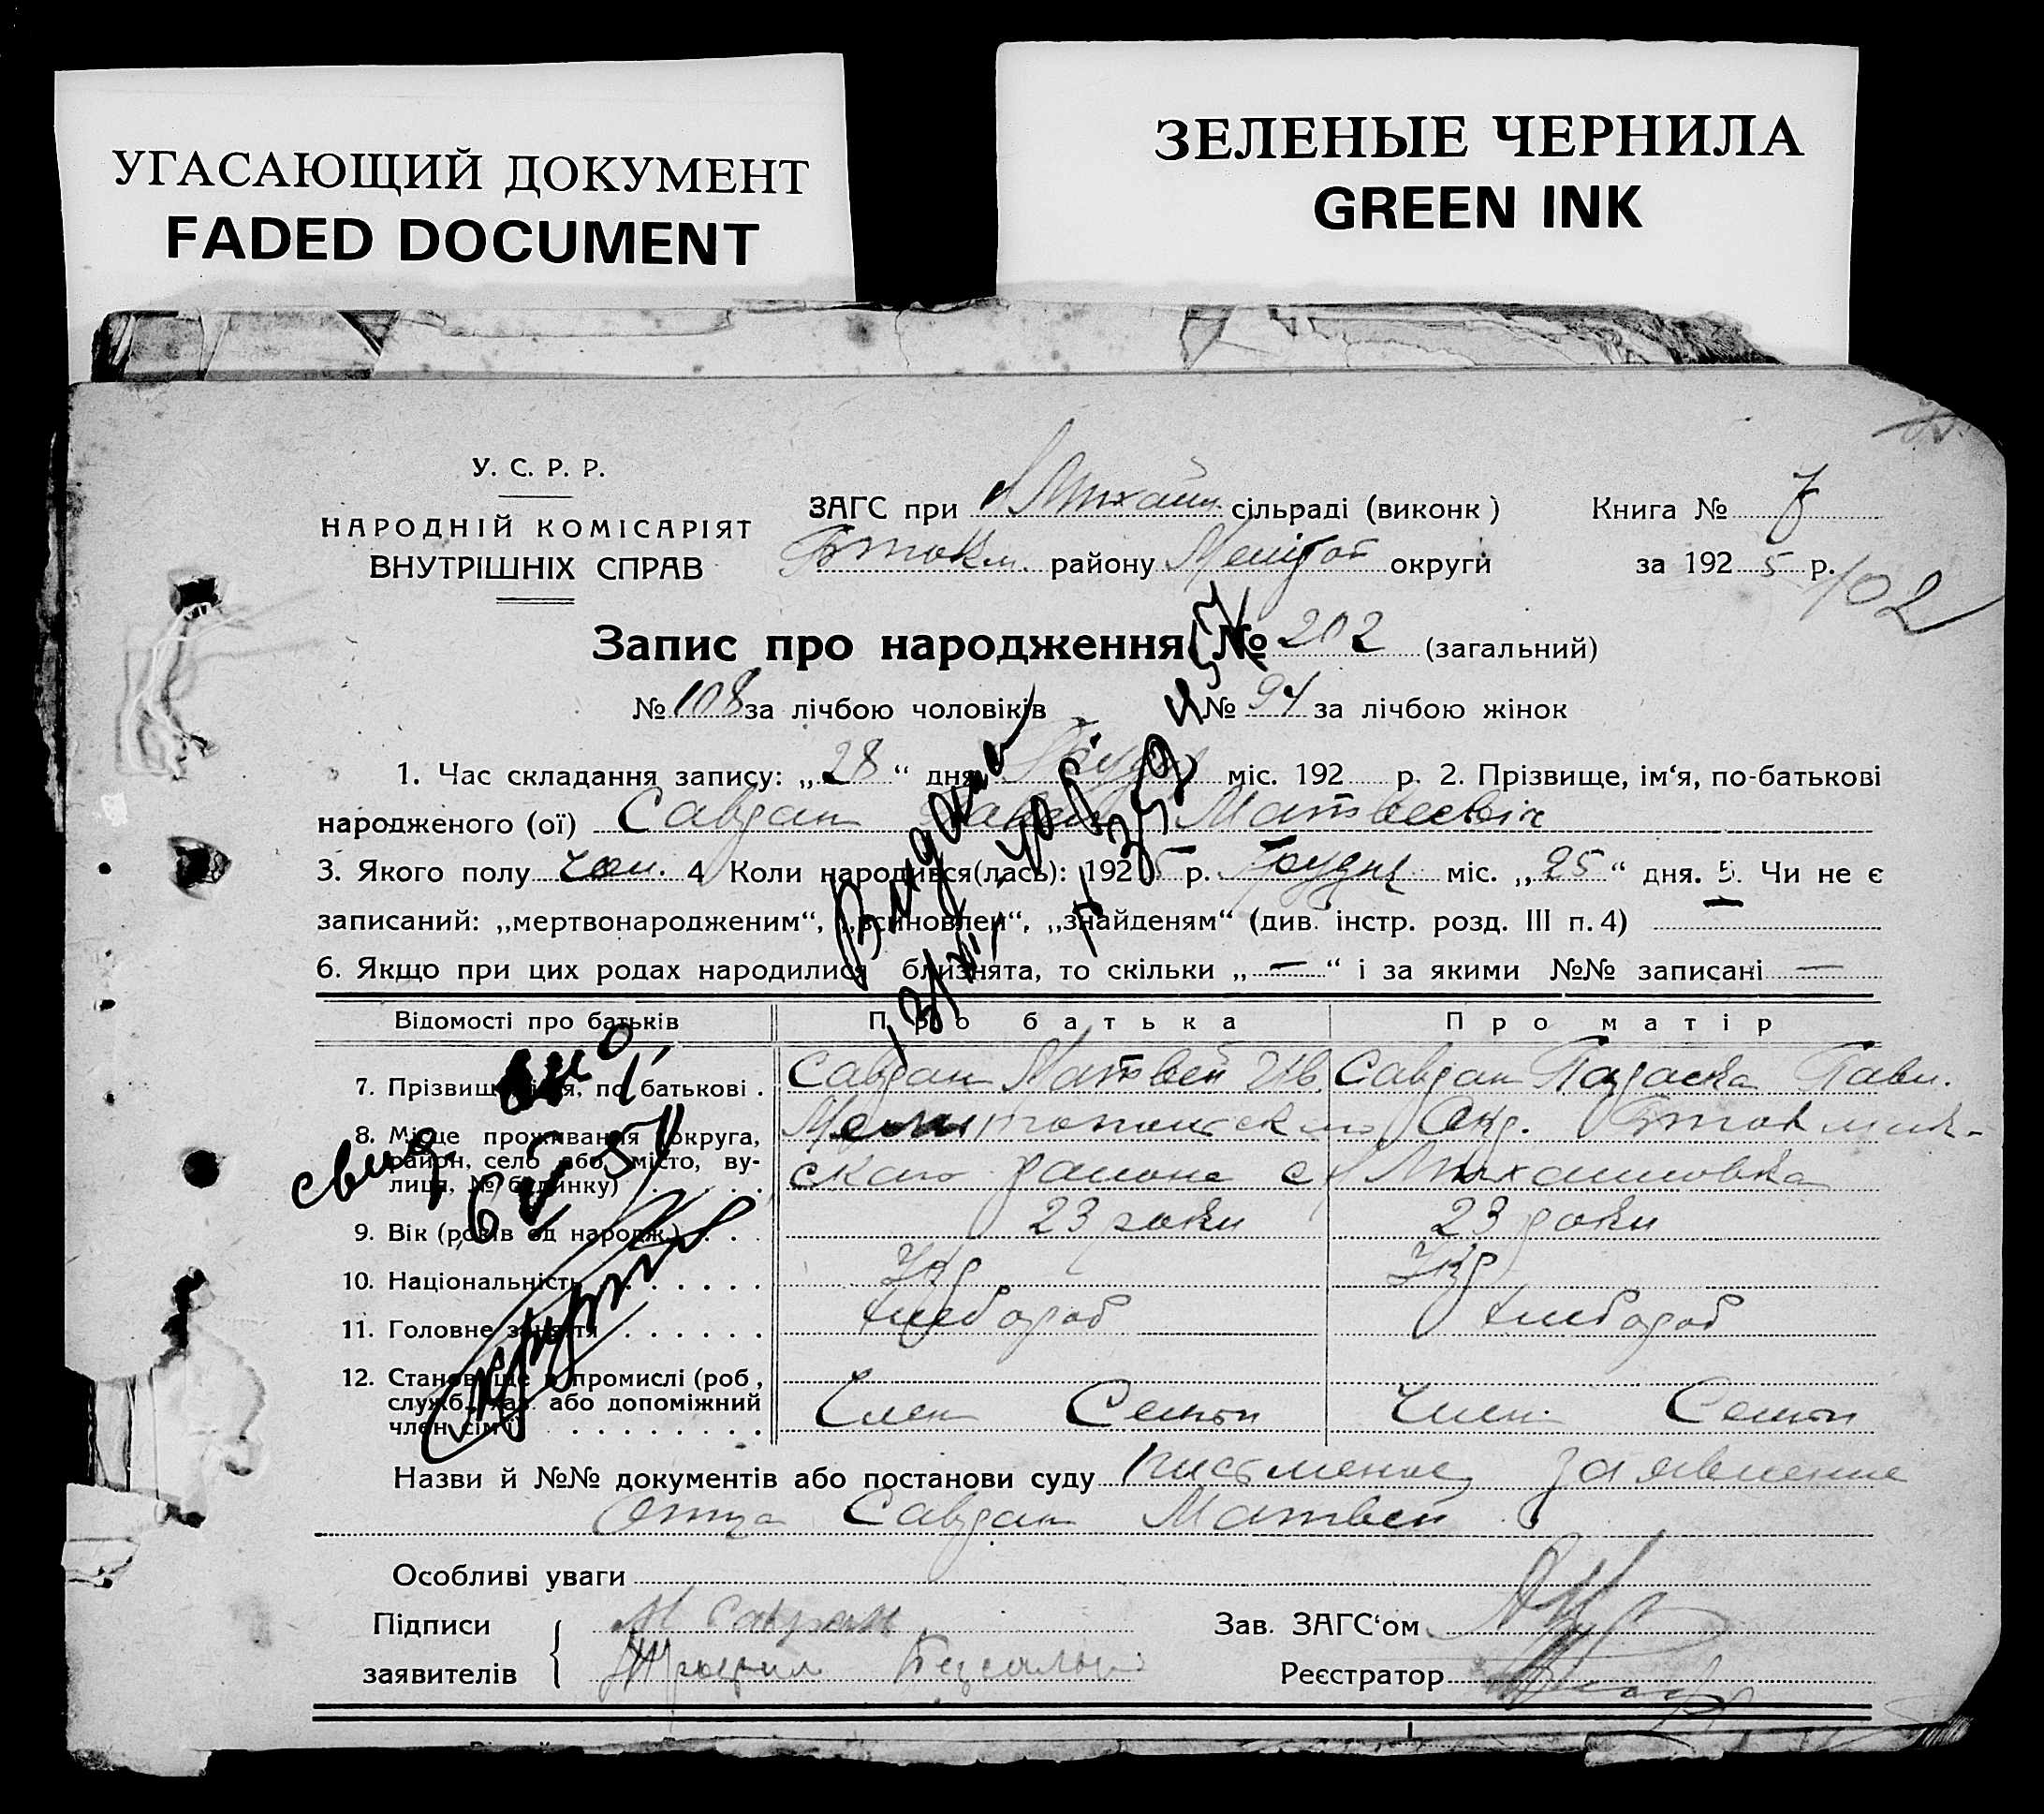 УГАСАЮЩИЙ ДОКУМЕНТ
FADED DOCUMENT
ЗЕЛЕНЫЕ ЧЕРНИЛА
GREEN INK
У. С. Р. Р.
НАРОДНІЙ КОМІСАРІЯТ
ВНУТРІШНІХ СПРАВ
ЗАГС при Михайл. сільраді (виконк)
В токм. району Меліт округи
Книга № 7
за 1925 р.
102
Запис про народження № 202 (загальний)
№ 108 за лічбою чоловіків № 94 за лічбою жінок
1. Час складання запису: „28“ дня Грудн міс. 192 р. 2. Прізвище, ім'я, по-батькові
народженого (ої) Савран Матвеевіч
3. Якого полу чол. 4 Коли народився(лась): 1925 р. Грудня міс. „25“ дня. 5. Чи не є
записаний: „мертвонародженим“, „всиновлен“, „знайденям“ (див. інстр. розд. III п. 4)
6. Якщо при цих родах народилися близнята, то скільки „—“ і за якими №№ записані —
Відомості про батьків Про батька Про матір
7. Прізвище, ім'я, по батькові . Савран Матвей Ив Савран Параска Павл.
8. Місце проживання (округа, район, село або місто, вулиця, № будинку) Мелитопольск Окр. Токмакскаго района с Михайловка
9. Вік (років од народж.) . . . 23 роки 23 роки
10. Національність . . . . . . Укр Укр
11. Головне заняття . . . . . . хлебороб хлебороб
12. Становище в промислі (роб, служб., хаз. або допоміжний член сім'ї) Член Семьи Член Семьи
Назви й №№ документів або постанови суду письменое заявление
отца Савран Матвей
Особливі уваги
Підписи
заявителів
М Савран
Трофим
Зав. ЗАГС'ом
Реєстратор
Выдана
свид